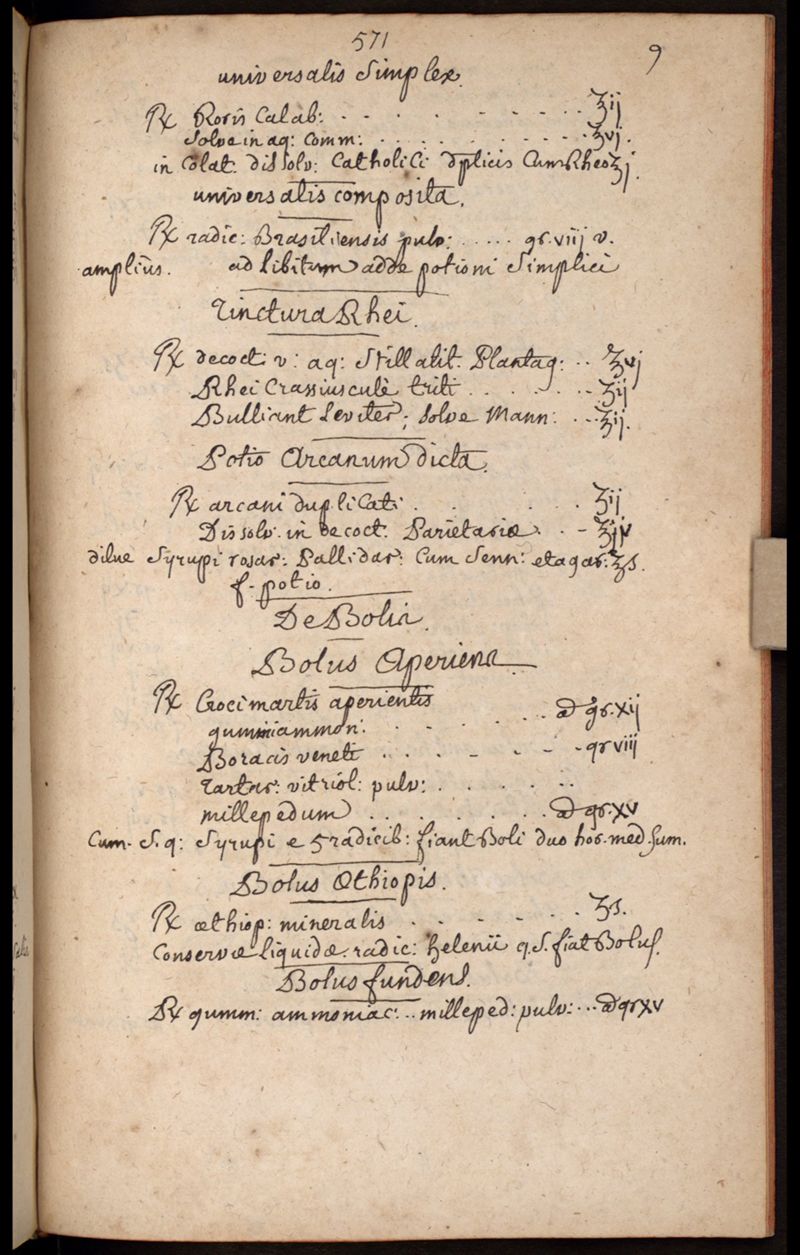 571
9
universalis Simplex.
℞ Roris Calab: . . . . . . . ʒij
Solve in aq: Comm: . . . . . . . . ʒvj.
in Colat: dissolv: Catholici dplicis Cum Rheo ʒj.
universalis composita.
℞ radic: Brasiliensis pulv: . . . . . gr. viij v.
amplius. ad libitum adde potioni Simplici
Tinctura Rhei.
℞ decoct: v: aq: Stillatit: Plantag: . . ʒvj
Rhei Crassiusculè triti . . . . . . ʒij
Bulliant leviter; solve Mann: . . . ʒij.
Potio Arcanum dicta.
℞ arcani duplicati . . . . . ʒij
Dissolv. in decoct. Parietariæ . . - ʒjv
dilue Syrupi rosar: Pallidar: Cum Senn: et agar: ʒs.
f. potio.
De Bolis.
Bolus Aperiens
℞ Croci martis aperientis
gummi ammon: . . . . . . . aa gr. xij
Boracis veneti . . . . - . - - gr viii
Tartar: vitriol: pulv: . . . . . .
millepedum . . . . . . . aa gr. xv
Cum. S. q: Syrupi e 5 radicib: fiant Boli duo hor. med. sum.
Bolus Æthiopis.
℞ æthiop: mineralis . . . . . . ʒs.
Conservæ liquidæ radic: helenii q. S. fiat Bolus.
Bolus fundens.
℞ gumm: ammoniac: . . milleped: pulv: . . . aa gr xv